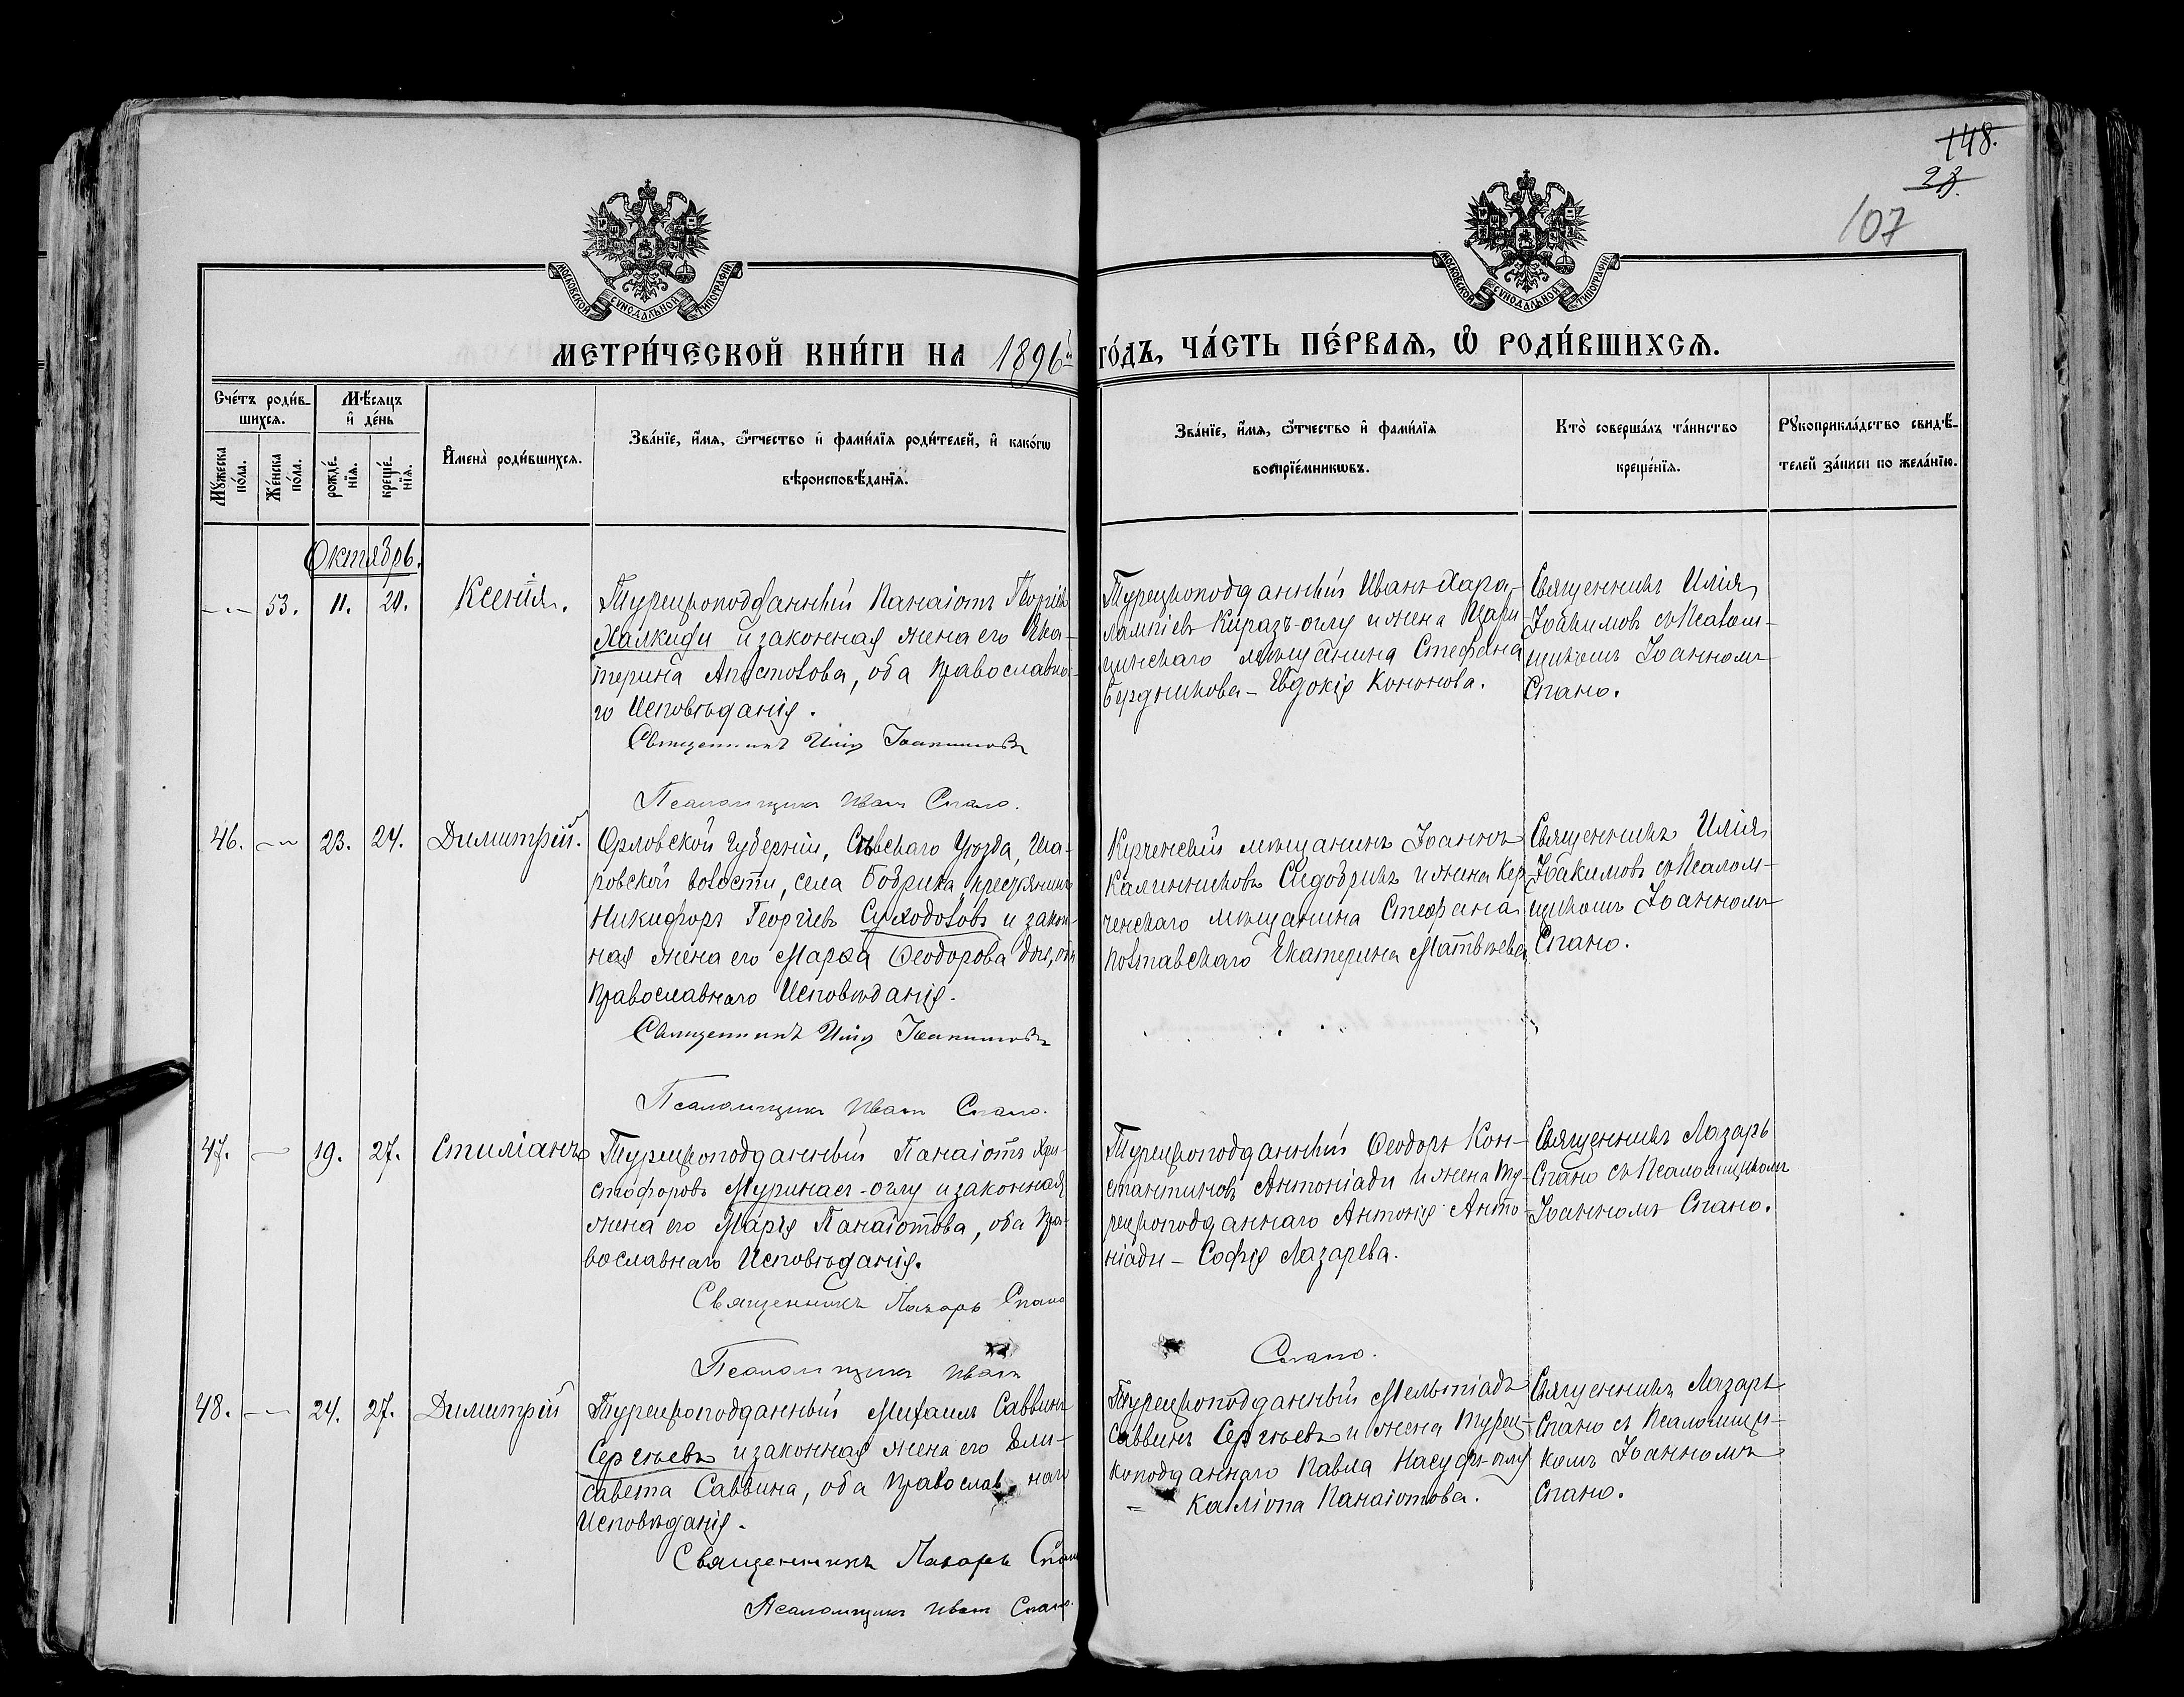 148.
23.
107
МОСКОВСКОЙ СѴНОДАЛЬНОЙ ТИПОГРАФІИ
МОСКОВСКОЙ СѴНОДАЛЬНОЙ ТИПОГРАФІИ
МЕТРИ́ЧЕСКОЙ КНИ́ГИ НА 1896й ГО́ДЪ, ЧА́СТЬ ПЕ́РВАѦ, Ѡ҆ РОДИ́ВШИХСѦ.
Сче́тъ роди́в-
шихсѧ.
Мѣ́сѧцъ
и҆ де́нь
Мꙋ́жеска
по́ла.
Же́нска
по́ла.
рожде́-
нїѧ.
креще́-
нїѧ.
И҆мена̀ роди́вшихсѧ.
Зва́нїе, и҆́мѧ, ѻ҆́тчество и҆ фами́лїѧ роди́телей, и҆ како́гѡ
вѣроисповѣ́данїѧ.
Зва́нїе, и҆́мѧ, ѻ҆́тчество и҆ фами́лїѧ
воспрїе́мникѡвъ.
Кто̀ соверша́лъ та́инство
креще́нїѧ.
Рꙋкоприкла́дство свидѣ́-
телей за́писи по жела́нїю.
Октябрь.
53. 11. 20. Ксенія.
Турецкоподданный Панаіотъ Георгіевъ
Халкиди и законная жена его Ека-
терина Апостолова, оба православна-
го Исповѣданія.
Священникъ Илія Іоакимовъ
Псаломщикъ Иванъ Спано.
Турецкоподданный Иванъ Хара-
лампіевъ Киразъ-оглу и жена Цари-
цинскаго мѣщанина Стефана
Бердникова - Евдокія Кононова.
Священникъ Илія
Іоакимовъ съ Псалом-
щикомъ Іоанномъ
Спано.
46. 23. 24. Димитрій.
Орловской Губерніи, Сѣвскаго Уѣзда,
ровской волости, села Бобрика крестьянинъ
Никифоръ Георгіевъ Суходоловъ и закон-
ная жена его Марѳа Ѳеодорова
Православнаго Исповѣданія.
Священникъ Илія Іоакимовъ
Псаломщикъ Иванъ Спано.
Керченскій мѣщанинъ Іоаннъ
Калинниковъ Сидобринъ и жена Кер-
ченскаго мѣщанина Стефана
Полтавскаго Екатерина Матвѣева
Священникъ Илія
Іоакимовъ съ Псалом-
щикомъ Іоанномъ
Спано.
47. 19. 27. Стиліанъ
Турецкоподданный Панаіотъ Хри-
стофоровъ Муринаси-оглу и законная
жена его Марія Панаіотова, оба Пра-
вославнаго Исповѣданія.
Священникъ Лазарь Спано
Псаломщикъ Иванъ Спано.
Турецкоподданный Ѳеодоръ Кон-
стантиновъ Антоніади и жена Ту-
рецкоподданнаго Антонія Анто-
ніади - Софія Лазарева.
Священникъ Лазарь
Спано съ Псаломщикомъ
Іоанномъ Спано.
48. 24. 27. Димитрій
Турецкоподданный Михаилъ Саввинъ
Сергѣевъ и законная жена его Ели-
савета Саввина, оба Православнаго
Исповѣданія.
Священникъ Лазарь Спано
Псаломщикъ Иванъ Спано.
Турецкоподданный Мельтіадъ
Саввинъ Сергѣевъ и жена Турец-
коподданнаго Павла Насуфъ-оглу
- Каліопа Панаіотова.
Священникъ Лазарь
Спано съ Псаломщи-
комъ Іоанномъ
Спано.